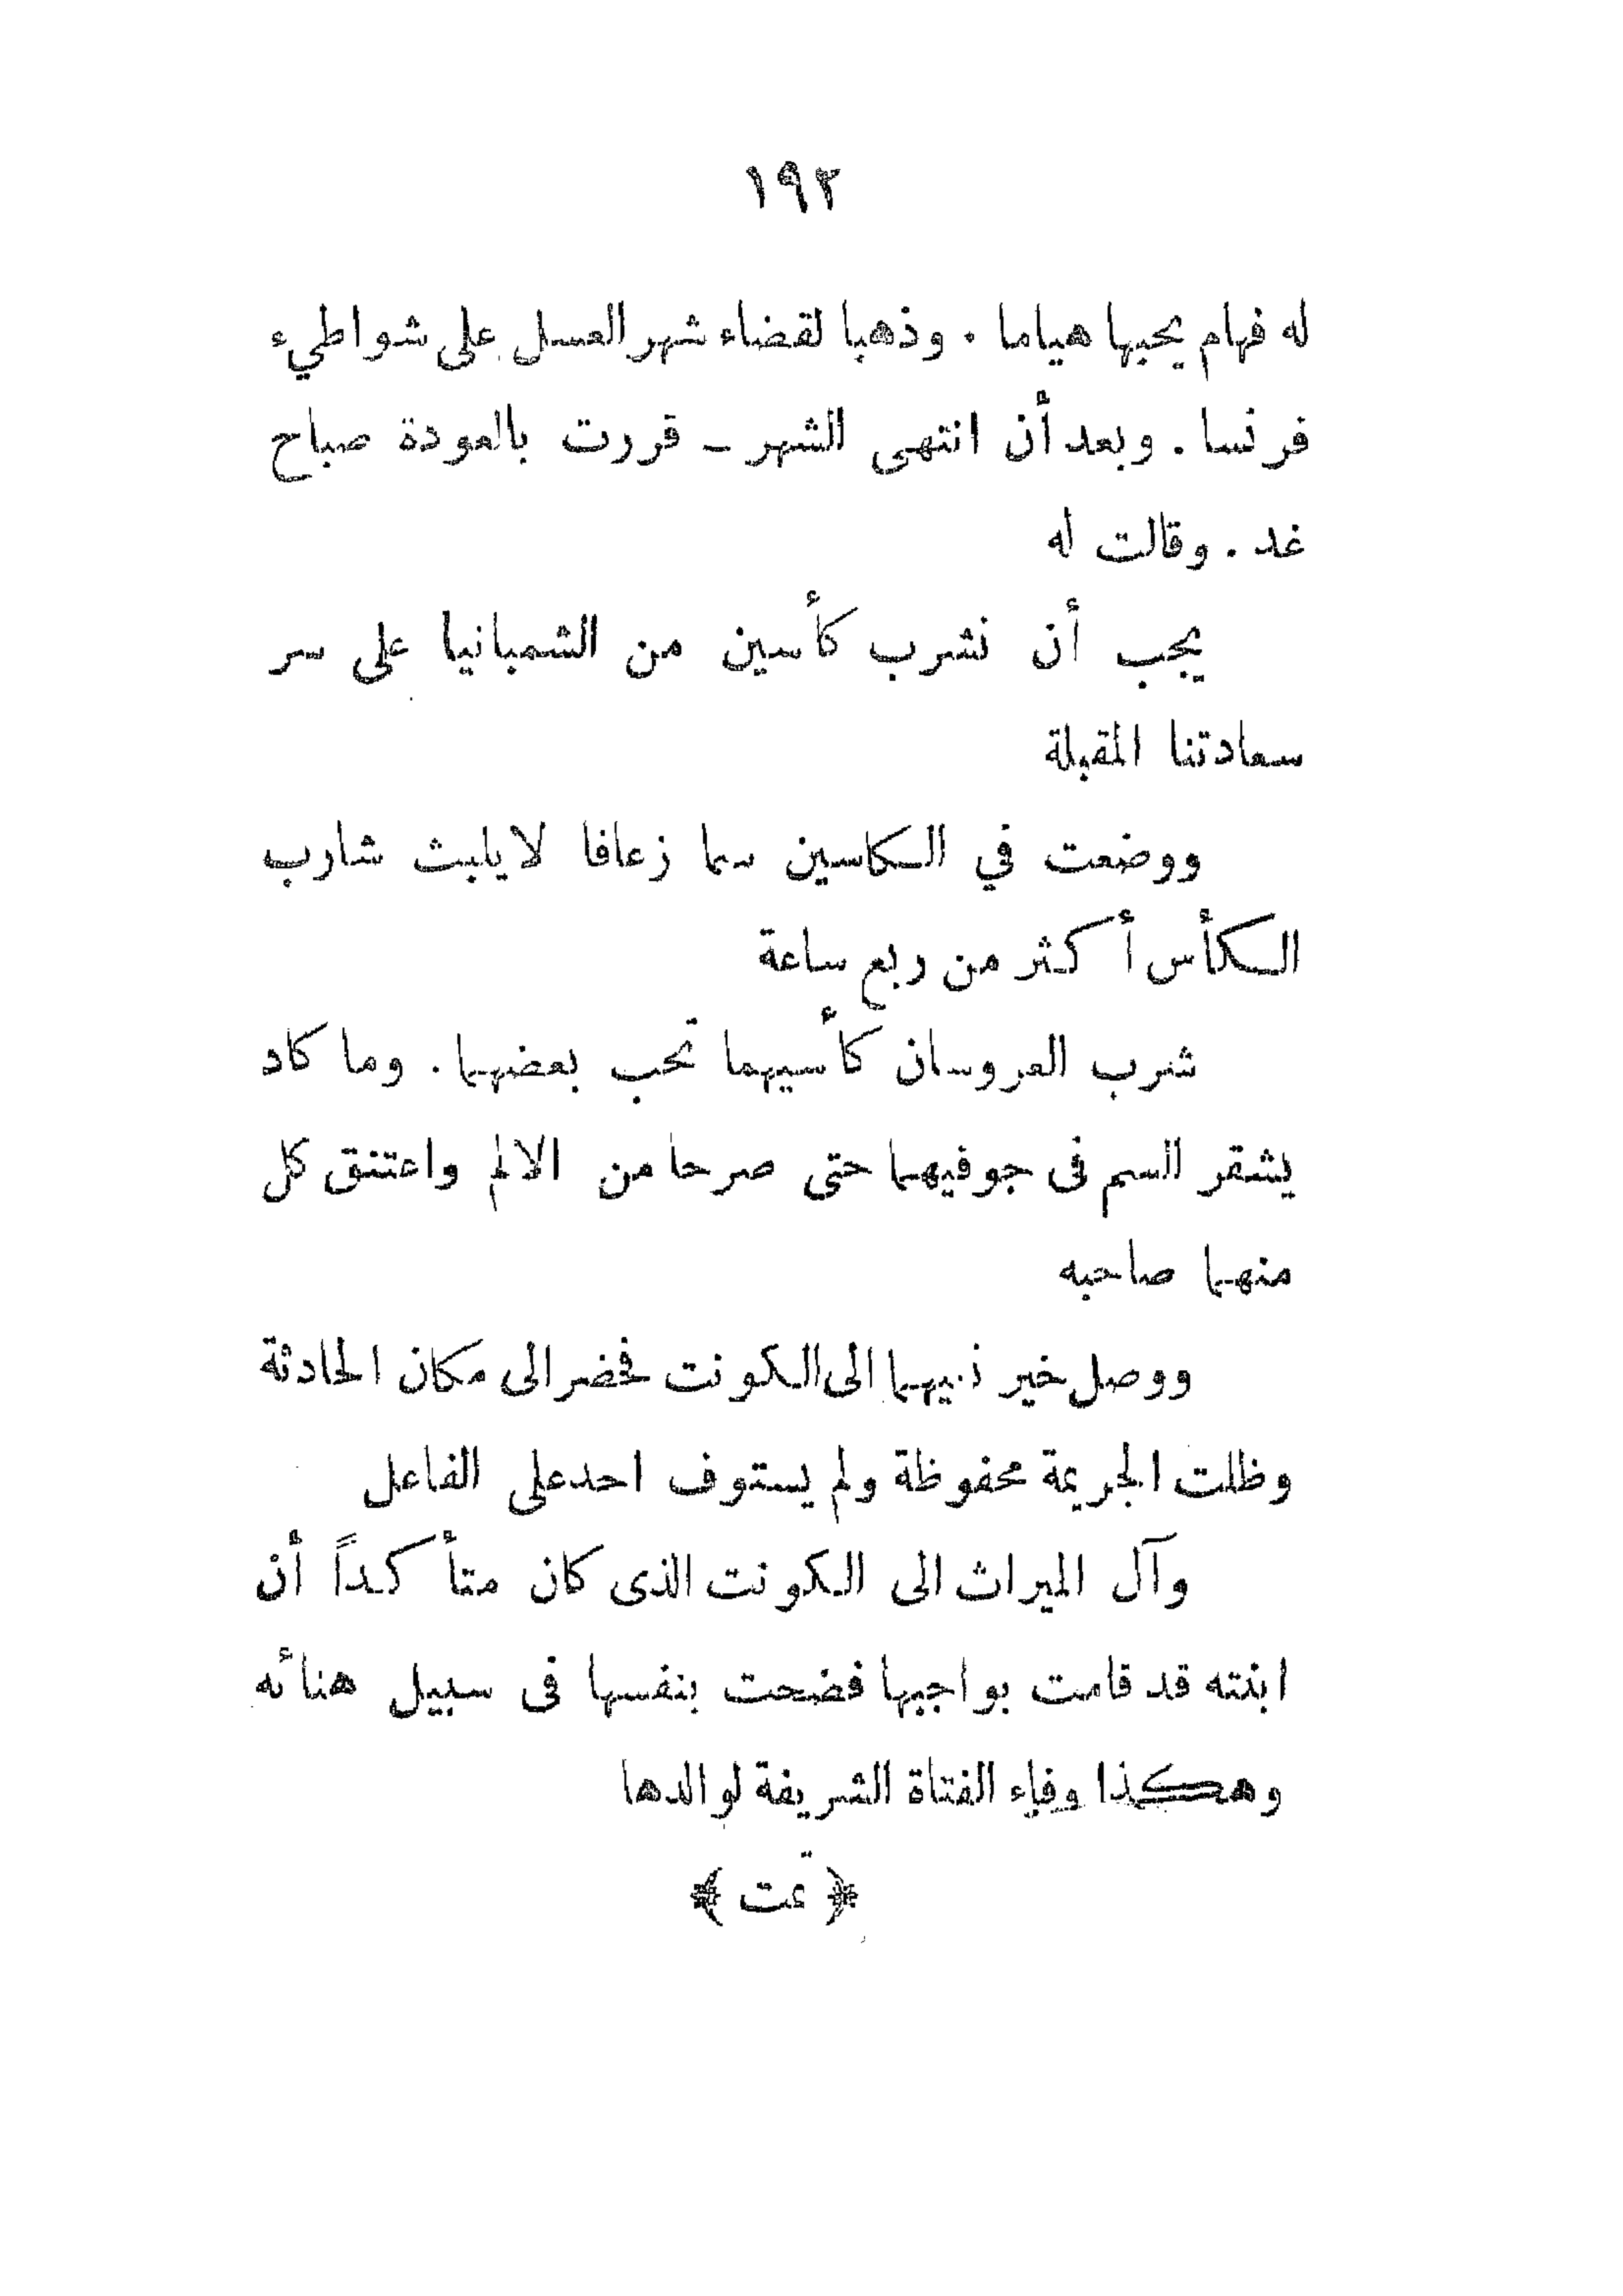 ١٩٢
له فهام يحبها هياما . وذهبا لقضاء شهر العسل على شواطيء
فرنسا . وبعد أن انتهى الشهر ــ قررت بالعودة صباح
غد . وقالت له
يجب أن نشرب كأسين من الشمبانيا على سر
سعادتنا المقبلة
ووضعت في الكاسين سما زعافا لا يلبث شارب
الكأس أكثر من ربع ساعة
شرب العروسان كأسيهما تحب بعضهما . وما كاد
يشقر السم فى جوفيهما حتى صرحا من الالم واعتنق كل
منهما صاحبه
ووصل خير نبيهما الى الكونت فحضر الى مكان الحادثة
وظلت الجريمة محفوظة ولم يستوف احد على الفاعل
وآل الميراث الى الكونت الذى كان متأكداً أن
ابنته قد قامت بواجبها فضحت بنفسها فى سبيل هنائه
وهكذا وفاء الفتاة الشريفة لوالدها
﴿ تمت ﴾